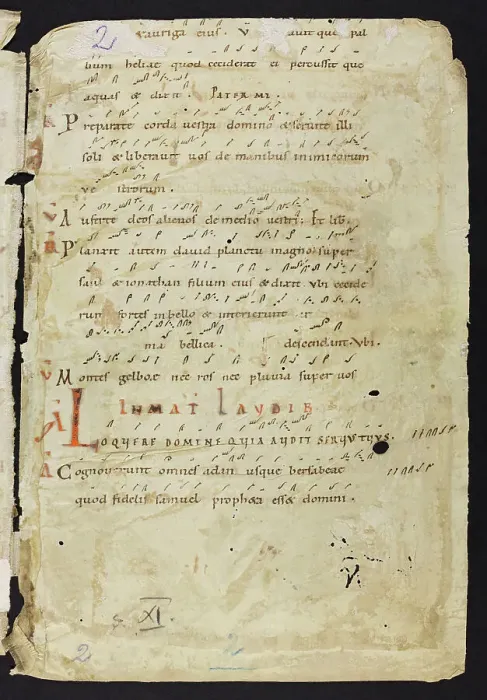 2
auriga eius. V aut que pal
lium heliae quod ceciderat et percussit que
aquas & dixit. PATER MI.
R Preparate corda vestra domino & seruite illi
soli & liberauit uos de manibus inimicorum
ue strorum.
V Auferte deos alienos de medio uestri. Et lib.
R Planxit autem dauid planctu magno super
saul & ionathan filium eius & dixit. Vbi cecide
runt fortes in bello & interierunt
ma bellica. descendunt. Vbi.
V Montes gelboe nec ros nec pluuia super uos
IN MAT LAUDIB
A LOQUERE DOMINE QUIA AUDIT SERUUS TUUS.
A Cognouerunt omnes a dan usque bersabeae
quod fidelis samuel propheta esset domini.
V.
s. XI.
2 2